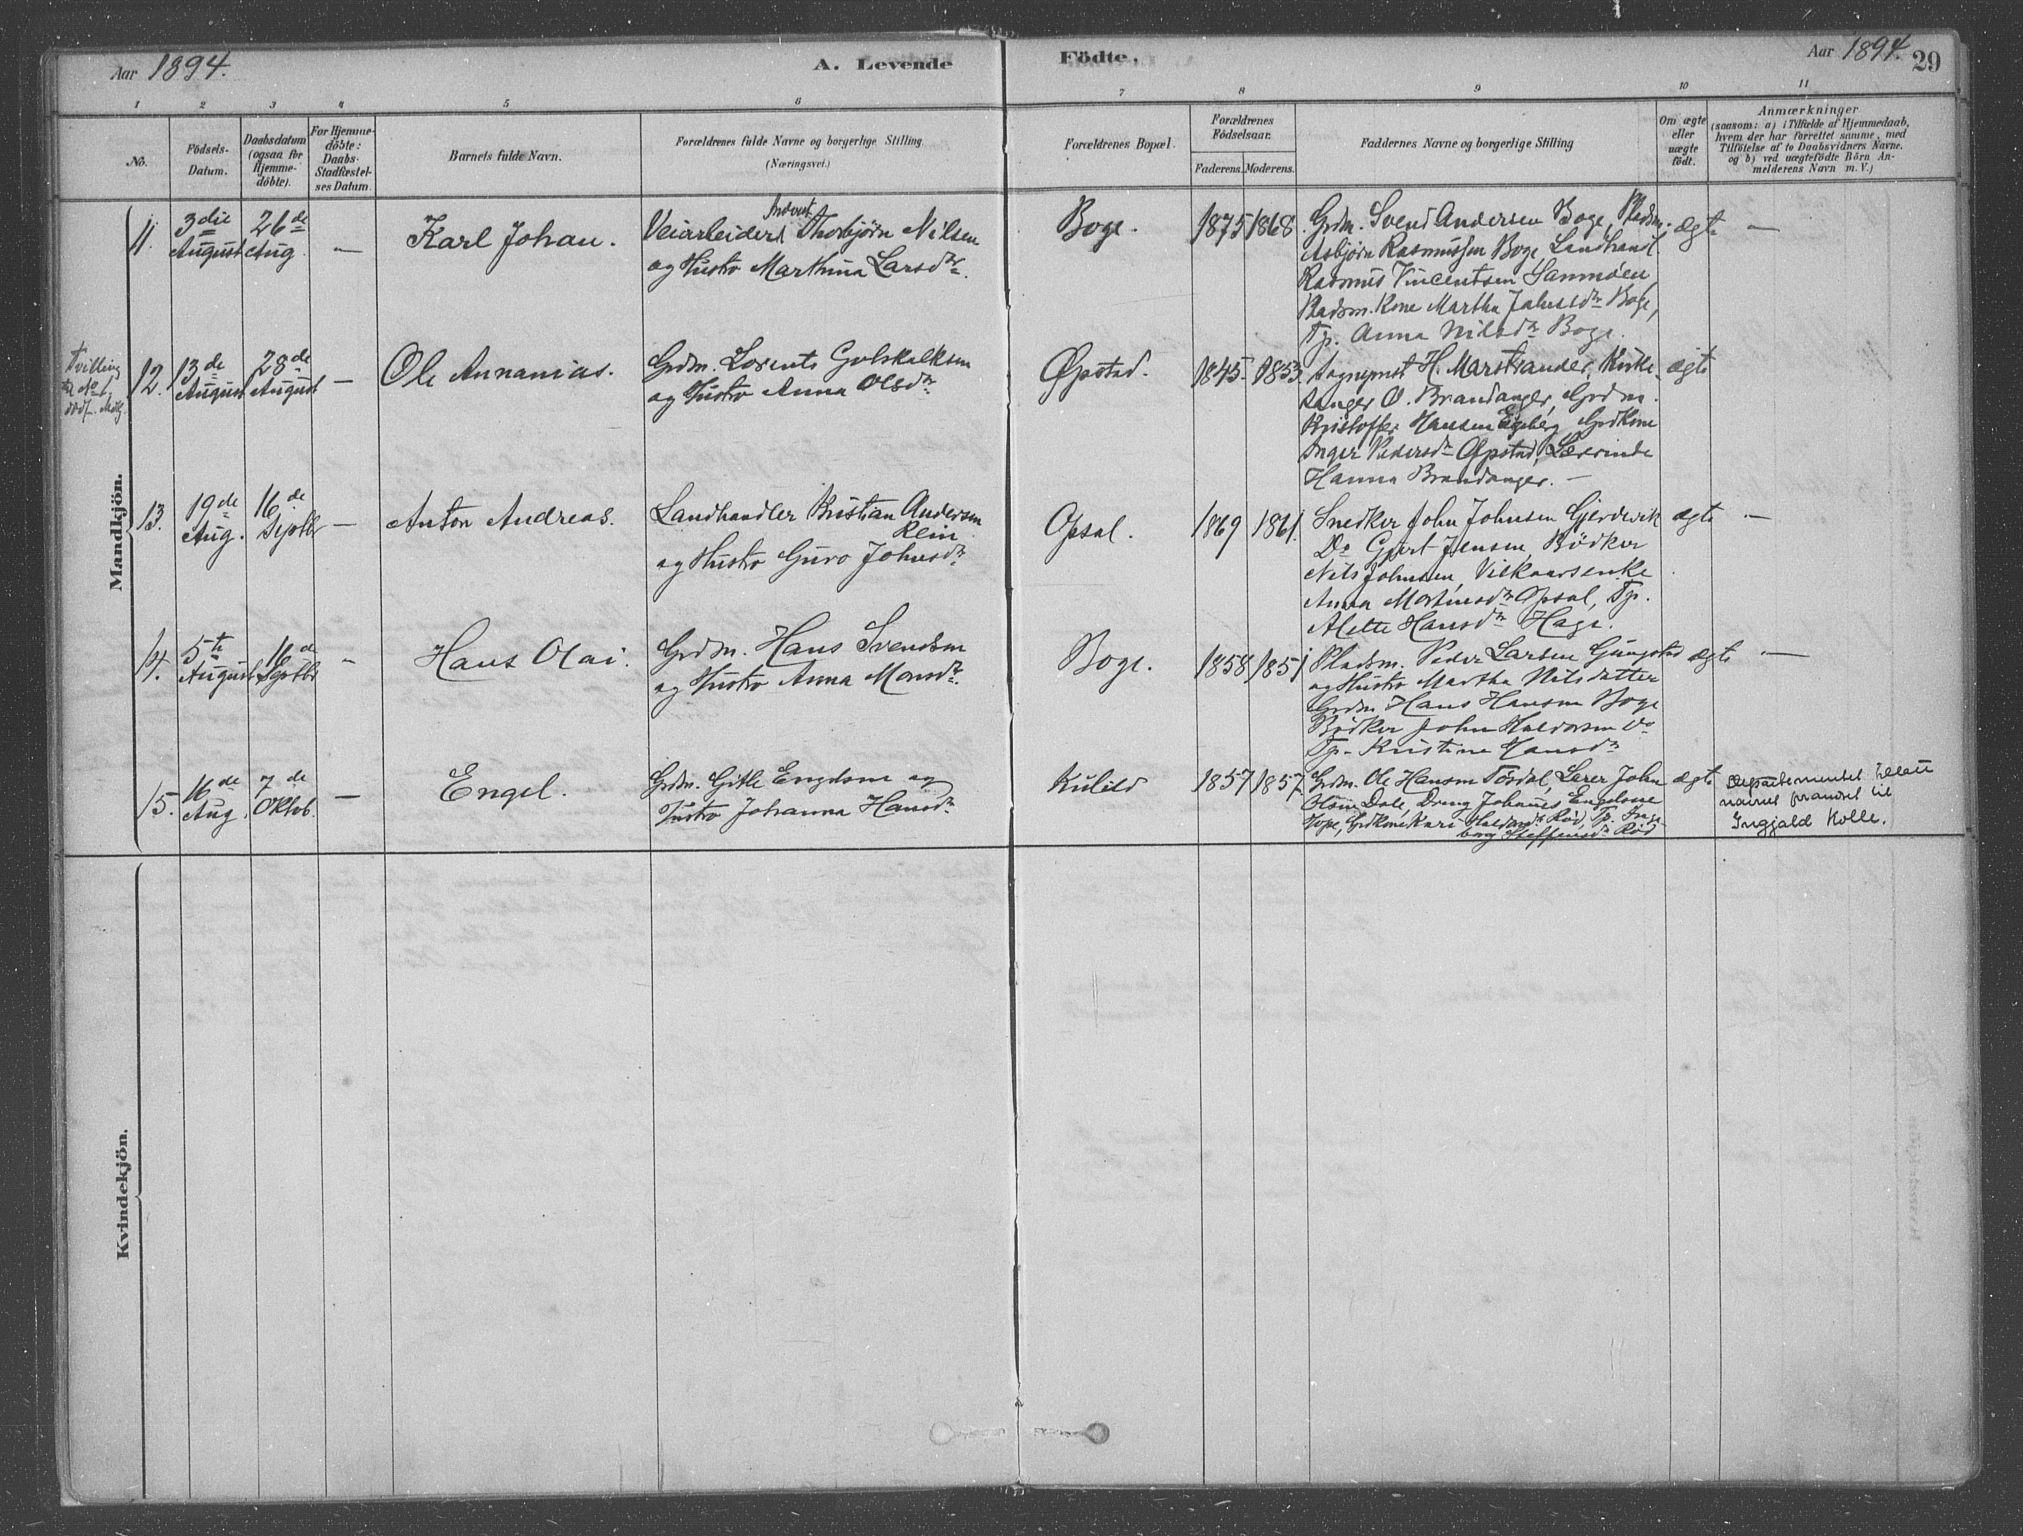 Aar 1894.
A. Levende
Födte.
Aar 1894.
29
1
2
3
4
5
6
7
8
9
10
11
No.
Födsels-
Datum.
Daabsdatum
(ogsaa for
Hjemme-
döbte).
For Hjemme-
döbte:
Daabs-
Stadfæstel-
ses Datum.
Barnets fulde Navn.
Forældrenes fulde Navne og borgerlige Stilling
(Næringsvei.)
Forældrenes Bopæl.
Forældrenes
Födselsaar.
Faderens.
Moderens.
Faddernes Navne og borgerlige Stilling
Om ægte
eller
uægte
födt.
Anmærkninger
(saasom: a) i Tilfælde af Hjemmedaab,
hvem der har forrettet samme, med
Tilföielse af to Daabsvidners Navne.
og b) ved uægtefödte Börn An-
melderens Navn m. V.)
Mandkjön.
11.
3die
August
26de
Aug.
—
Karl Johan.
Veiarbeider Thorbjørn Nilsen
og Hustro Marthina Larsdr.
Boge.
1875
1868.
Grdm. Svend Andersen Boge, Pladsm.
Asbjørn Rasmussen Boge, Landhandl.
Rasmus Vincentsen Sanmoen,
Pladsm. Kone Martha Johnsdr Boge,
Tp. Anna Nilsdr Boge.
ægte
—
Tvilling
12.
13de
August
28de
August
—
Ole Annanias.
Grdm. Lorents Gulskalksen
og Hustro Anna Olsdr
Øpstad.
1845
1853.
Sogneprest H. Marstrander, Kirke-
sanger O. Brandanger, Grdm.
Kristoffer Hansen Grdkone
Inger Pedersdr Opstad, Lærerinde
Hanna Brandanger. —
ægte
13.
19de
Aug.
16de
Septbr
—
Anton Andreas.
Landhandler Kristian Andersen
Rein
og Hustro Guro Johnsdr
Opsal.
1869
1861.
Snedker John Johnsen Gjerdevik
Do Gjert Jensen, Bödker
Nils Johnsen, Vilkaarsenke
Anna Mortensdr Opsal, Tp.
Alette Hansdr Hage.
ægte
—
14.
5te
August
16de
Septbr
-
Hans Olai.
Grdm. Hans Svendsen
og Hustro Anna Monsdr.
Boge.
1858
1851
Pladsm. Peder Larsen Gungstad
og Hustro Martha Nilsdatter
Grdm Hans Hansen Boge
Bödker John Haldorsen Do
Tp. Kristine Hansdr
ægte
—
15.
16de
Aug.
7de
Oktob.
—
Engel.
Grdm. Gitle Engelsen og
Hustro Johanna Hansdr
Kulild
1857
1857.
Grdm. Ole Hansen Tösdal, Lærer John
Olsen Dale, Dreng Johannes Engelsen
Hope, Grdkone Kari Haldorsdr Röd, Tp. Inge-
borg Steffensdr Röd
ægte
Departementet tillatt
navnet forandret til
Ingjald Kolle.
Kvindekjön.